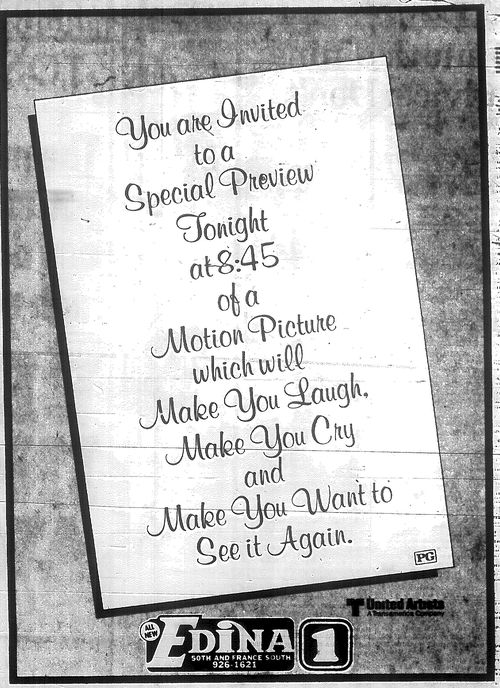 You are Invited
to a
Special Preview
Tonight
at 8:45
of a
Motion Picture
which will
Make You Laugh,
Make You Cry
and
Make You Want to
See it Again.
PG
United Artists
A Transamerica Company
ALL NEW
EDINA 1
50TH AND FRANCE SOUTH
926-1621